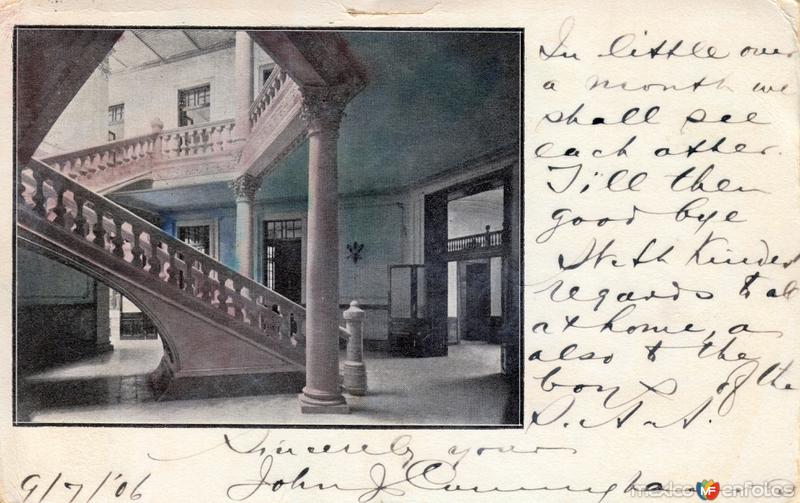 In little over
a month we
shall see
each other.
Till then
good bye
With Kindest
regards to all
at home, a
also to the
boys of the
S.A.A.
Sincerely yours
9/7/'06 John J Cunningha
mexicoenfotos
MF